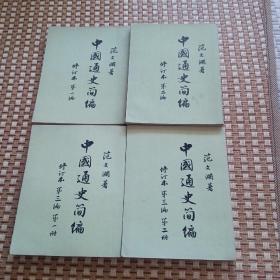 范文瀾著
中國通史简编
修订本 第一编
范文瀾著
中國通史简编
修订本 第二编
范文瀾著
中國通史简编
修订本 第三编 第一册
范文瀾著
中國通史简编
修订本 第三编 第二册